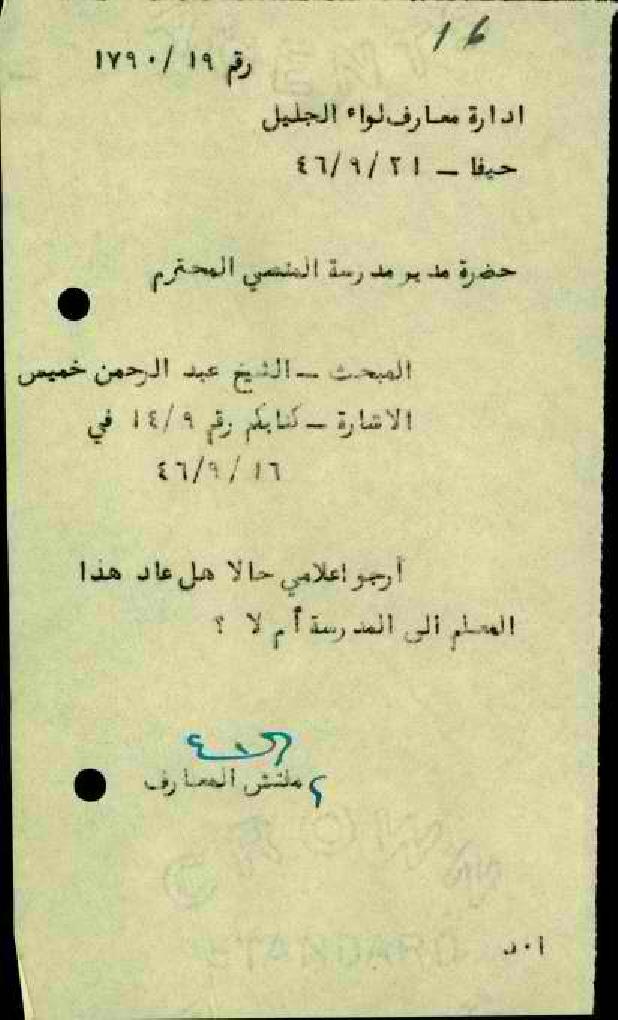 16
رقم ١٩ /١٧٩٠
ادارة معارف لواء الجليل
حيفا – ٢١/ ٩/ ٤٦
حضرة مدير مدرسة المنسي المحترم
المبحث – الشيخ عبد الرحمن خميس
الاشارة – كتابكم رقم ١٤/٩ في
١٦ /٤٦/٩
أرجو اعلامي حالا هل عاد هذا
المعلم الى المدرسة أم لا ؟
مفتش المعارف